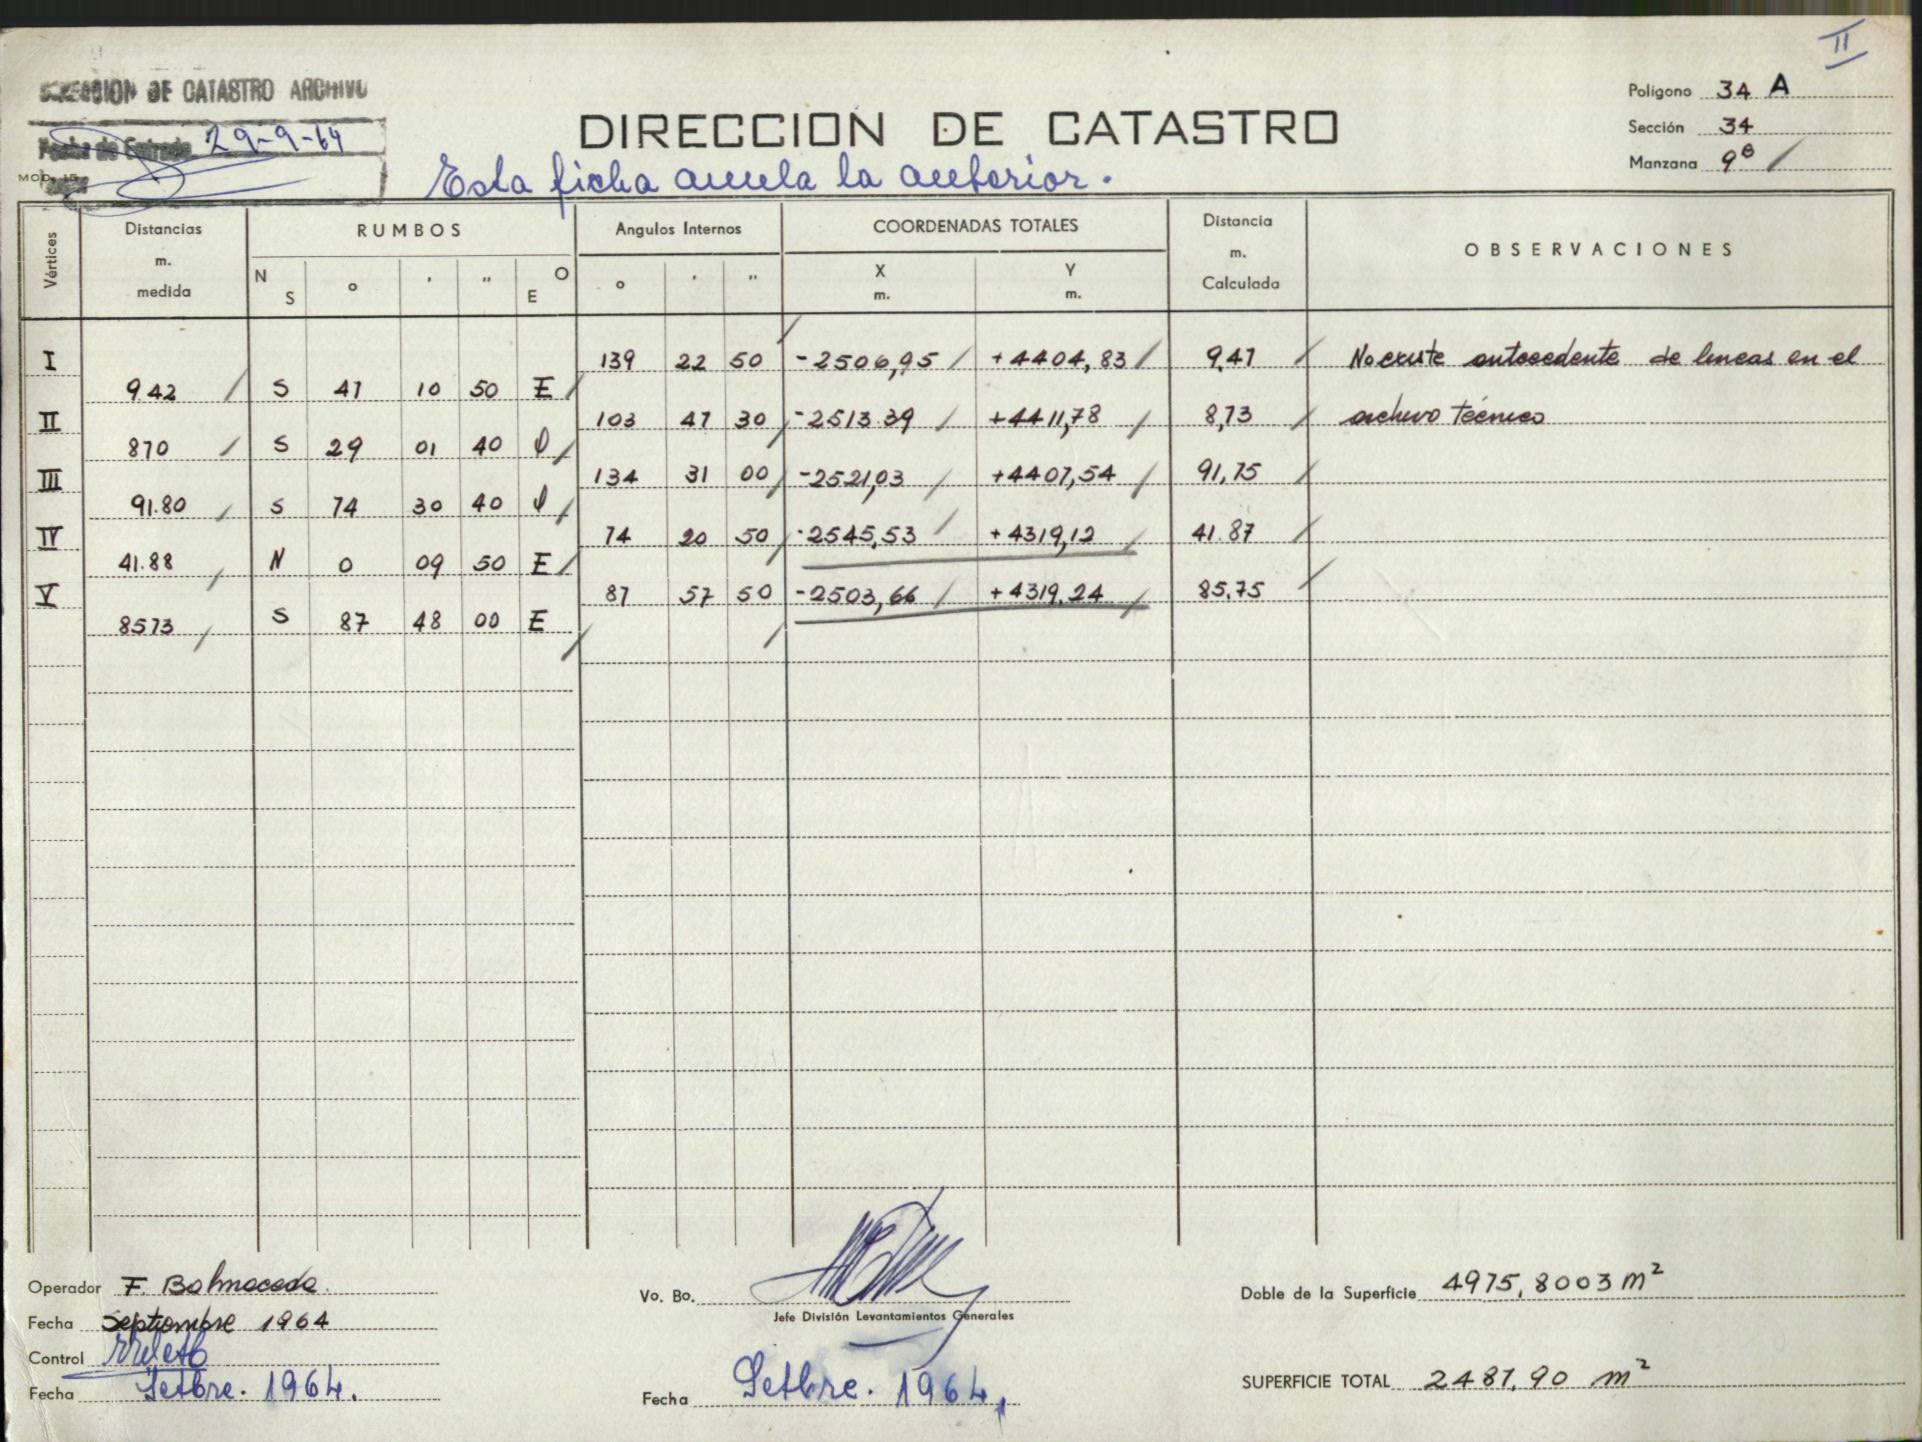 II
DIRECCION DE CATASTRO ARCHIVO
Fecha de Entrada 29-9-64
MOD. 15
DIRECCION DE CATASTRO
Esta ficha anula la anterior.
Polígono 34 A
Sección 34
Manzana 9B
Vértices
Distancias m. medida
RUMBOS
N S ° ' " O E
Angulos Internos
° ' "
COORDENADAS TOTALES
X m. Y m.
Distancia m. Calculada
OBSERVACIONES
I 139 22 50 -2506,95 +4404,83 9,47 No existe antecedente de lineas en el
9 42 S 47 10 50 E
II 103 47 30 -2513.39 +4411,78 8,73 archivo técnico
870 S 29 01 40 O
III 134 31 00 -2521,03 +4407,54 91,75
91.80 S 74 30 40 O
IV 74 20 50 -2545,53 +4319,12 41.87
41.88 N 0 09 50 E
V 87 57 50 -2503,66 +4319.24 85,75
8573 S 87 48 00 E
Operador F. Balmaceda.
Fecha Septiembre 1964
Control
Fecha Setbre. 1964.
Vo. Bo.
Jefe División Levantamientos Generales
Fecha Setbre. 1964,
Doble de la Superficie 4975,8003 m²
SUPERFICIE TOTAL 2487,90 m²